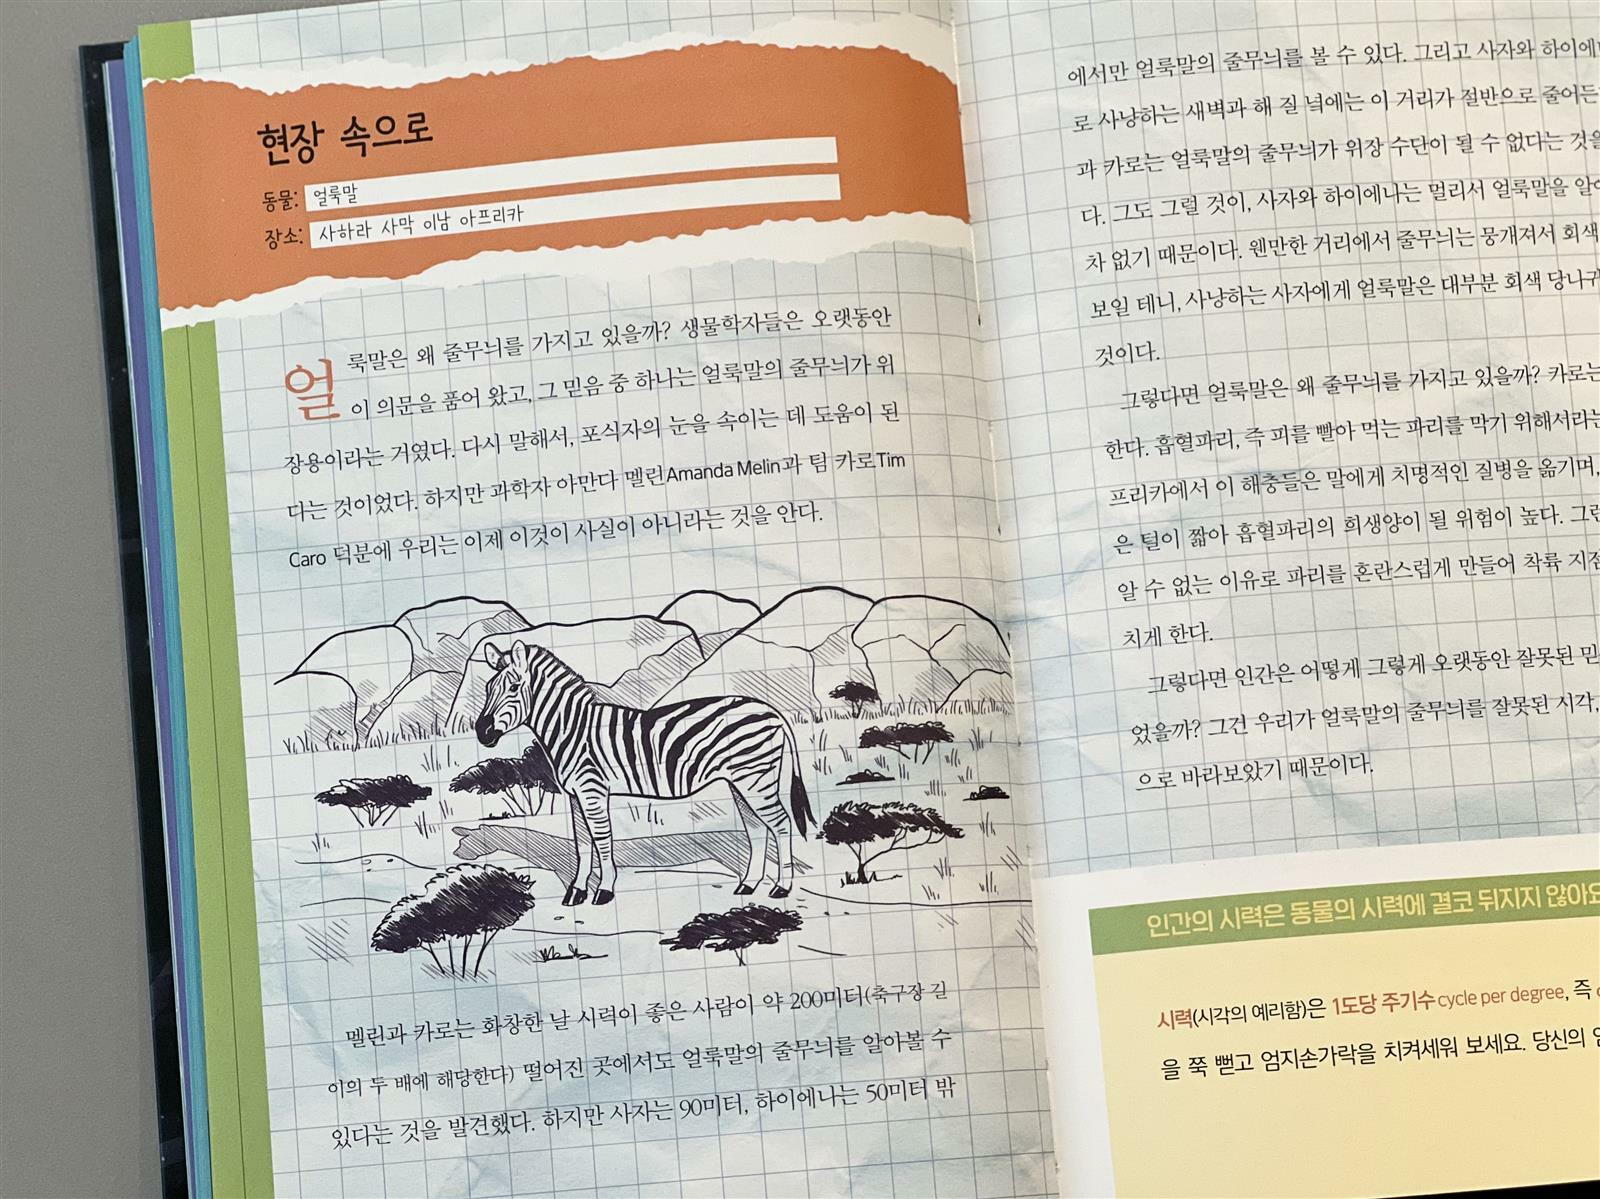 현장 속으로
동물: 얼룩말
장소: 사하라 사막 이남 아프리카
얼룩말은 왜 줄무늬를 가지고 있을까? 생물학자들은 오랫동안
이 의문을 품어 왔고, 그 믿음 중 하나는 얼룩말의 줄무늬가 위
장용이라는 거였다. 다시 말해서, 포식자의 눈을 속이는 데 도움이 된
다는 것이었다. 하지만 과학자 아만다 멜린Amanda Melin과 팀 카로Tim
Caro 덕분에 우리는 이제 이것이 사실이 아니라는 것을 안다.
멜린과 카로는 화창한 날 시력이 좋은 사람이 약 200미터(축구장 길
이의 두 배에 해당한다) 떨어진 곳에서도 얼룩말의 줄무늬를 알아볼 수
있다는 것을 발견했다. 하지만 사자는 90미터, 하이에나는 50미터 밖
에서만 얼룩말의 줄무늬를 볼 수 있다. 그리고 사자와 하이에
로 사냥하는 새벽과 해 질 녘에는 이 거리가 절반으로 줄어든
과 카로는 얼룩말의 줄무늬가 위장 수단이 될 수 없다는 것을
다. 그도 그럴 것이, 사자와 하이에나는 멀리서 얼룩말을 알
차 없기 때문이다. 웬만한 거리에서 줄무늬는 뭉개져서 회색
보일 테니, 사냥하는 사자에게 얼룩말은 대부분 회색 당나귀
것이다.
그렇다면 얼룩말은 왜 줄무늬를 가지고 있을까? 카로는
한다. 흡혈파리, 즉 피를 빨아 먹는 파리를 막기 위해서라는
프리카에서 이 해충들은 말에게 치명적인 질병을 옮기며,
은 털이 짧아 흡혈파리의 희생양이 될 위험이 높다. 그런
알 수 없는 이유로 파리를 혼란스럽게 만들어 착륙 지점
치게 한다.
그렇다면 인간은 어떻게 그렇게 오랫동안 잘못된 믿
었을까? 그건 우리가 얼룩말의 줄무늬를 잘못된 시각,
으로 바라보았기 때문이다.
인간의 시력은 동물의 시력에 결코 뒤지지 않아요
시력(시각의 예리함)은 1도당 주기수cycle per degree, 즉
을 쭉 뻗고 엄지손가락을 치켜세워 보세요. 당신의